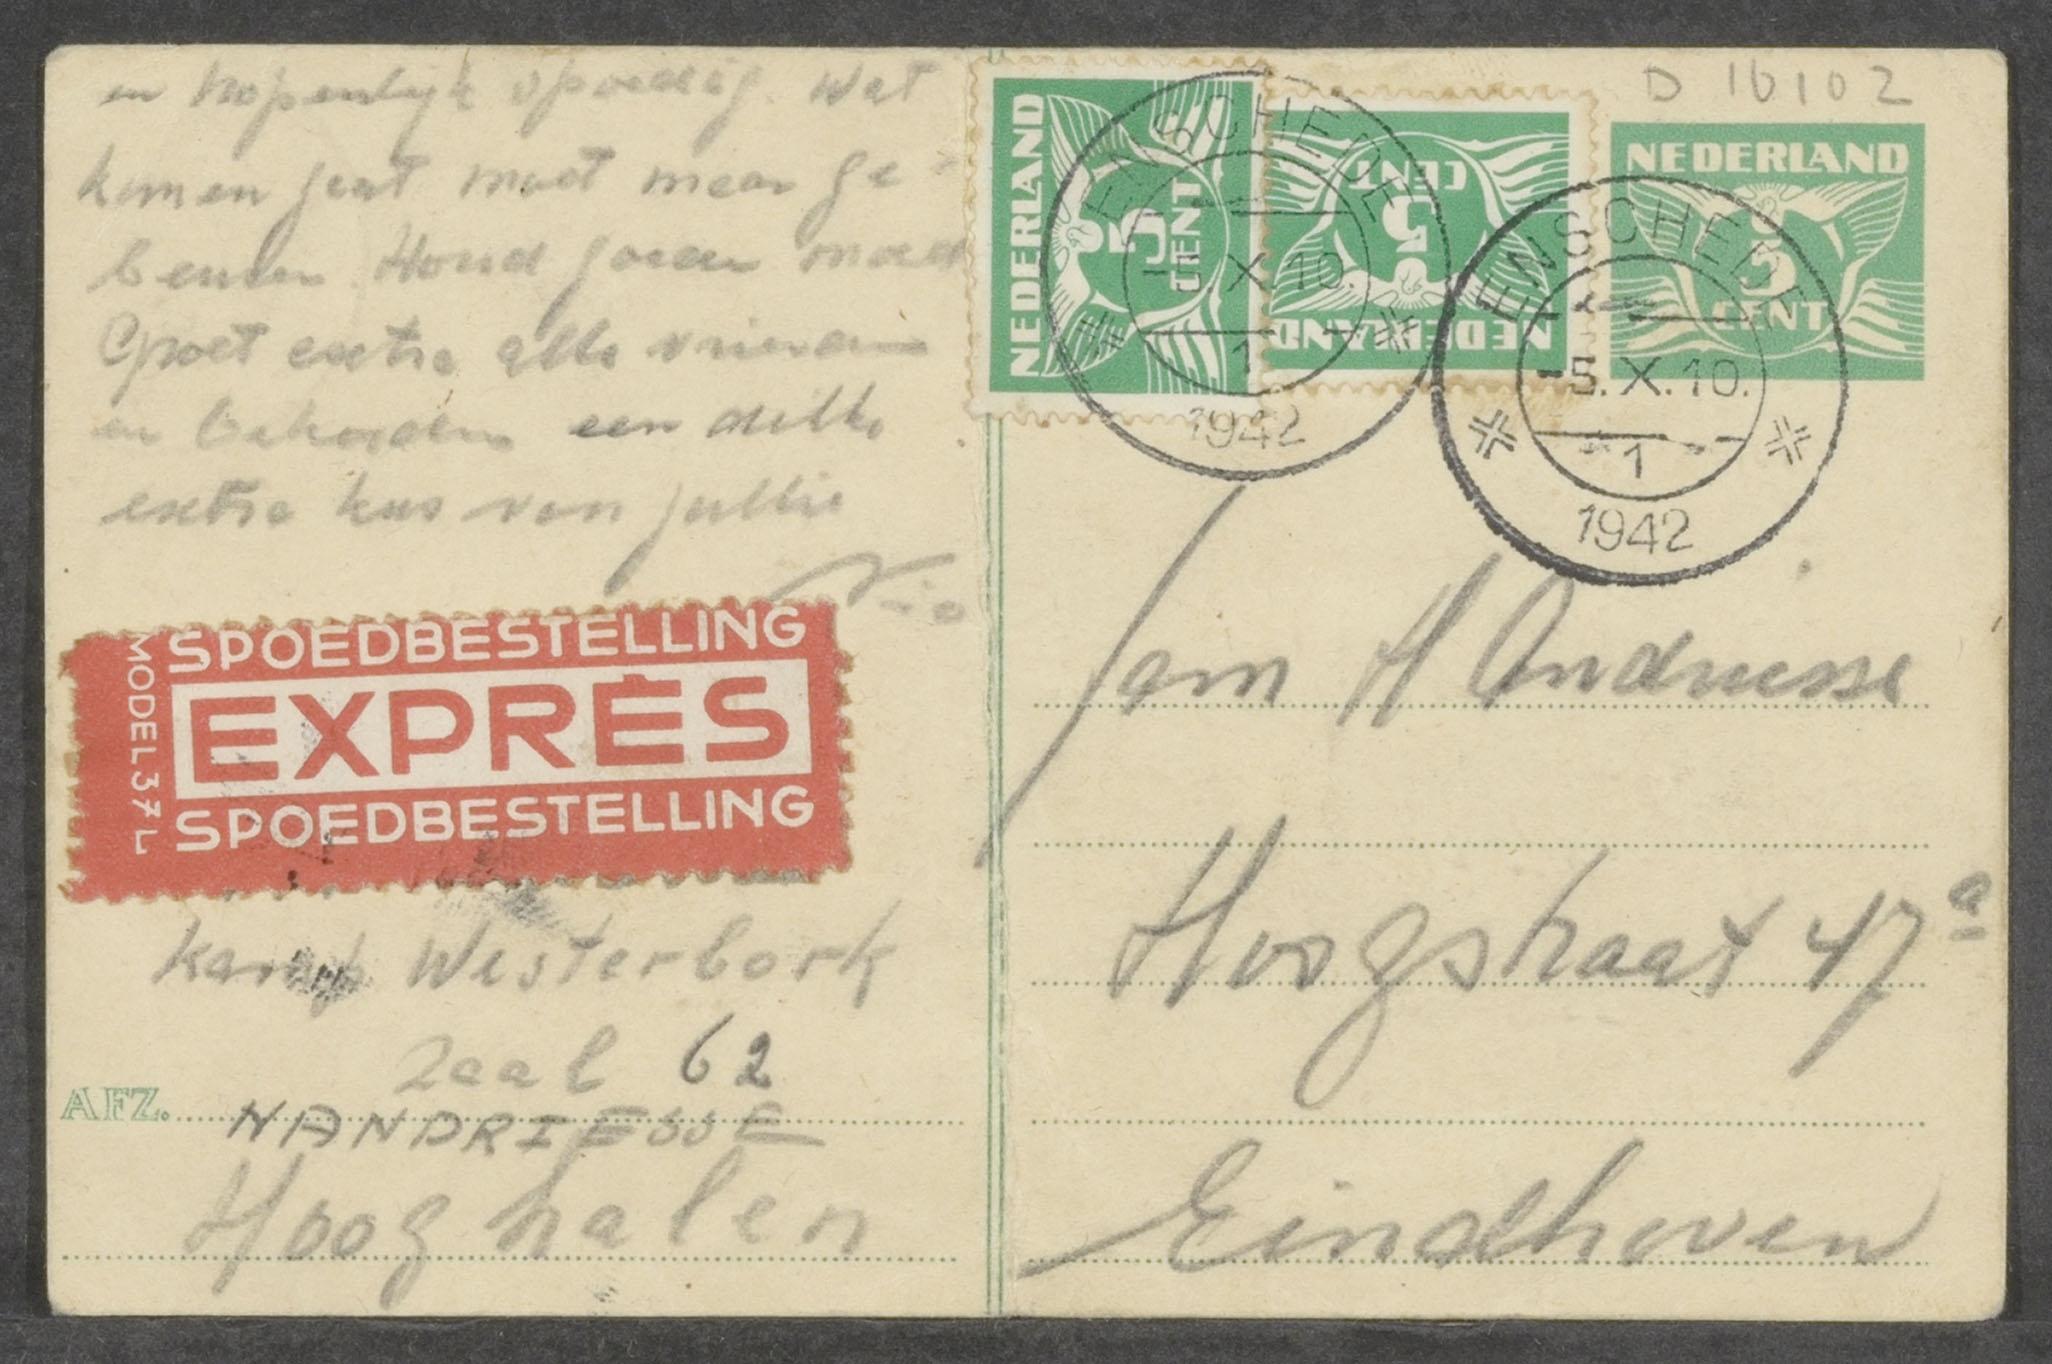 en hopenlijk spoedig. Wat
komen gaat moet maar ge-
beuren. Houd goeden moed
Groet extra alle vrienden
en behorden een dikke
extra kus van jullie
SPOEDBESTELLING
EXPRÈS
SPOEDBESTELLING
MODEL 37 L
Kamp Westerbork
Zaal 62
AFZ. N ANDRIESSE
Hooghalen
D 16102
NEDERLAND
5
CENT
NEDERLAND
5
CENT
NEDERLAND
5
CENT
ENSCHEDE
X.10.
1
1942
ENSCHEDE
-5.X.10.
1
1942
Fam H Andriesse
Hoogstraat 47a
Eindhoven